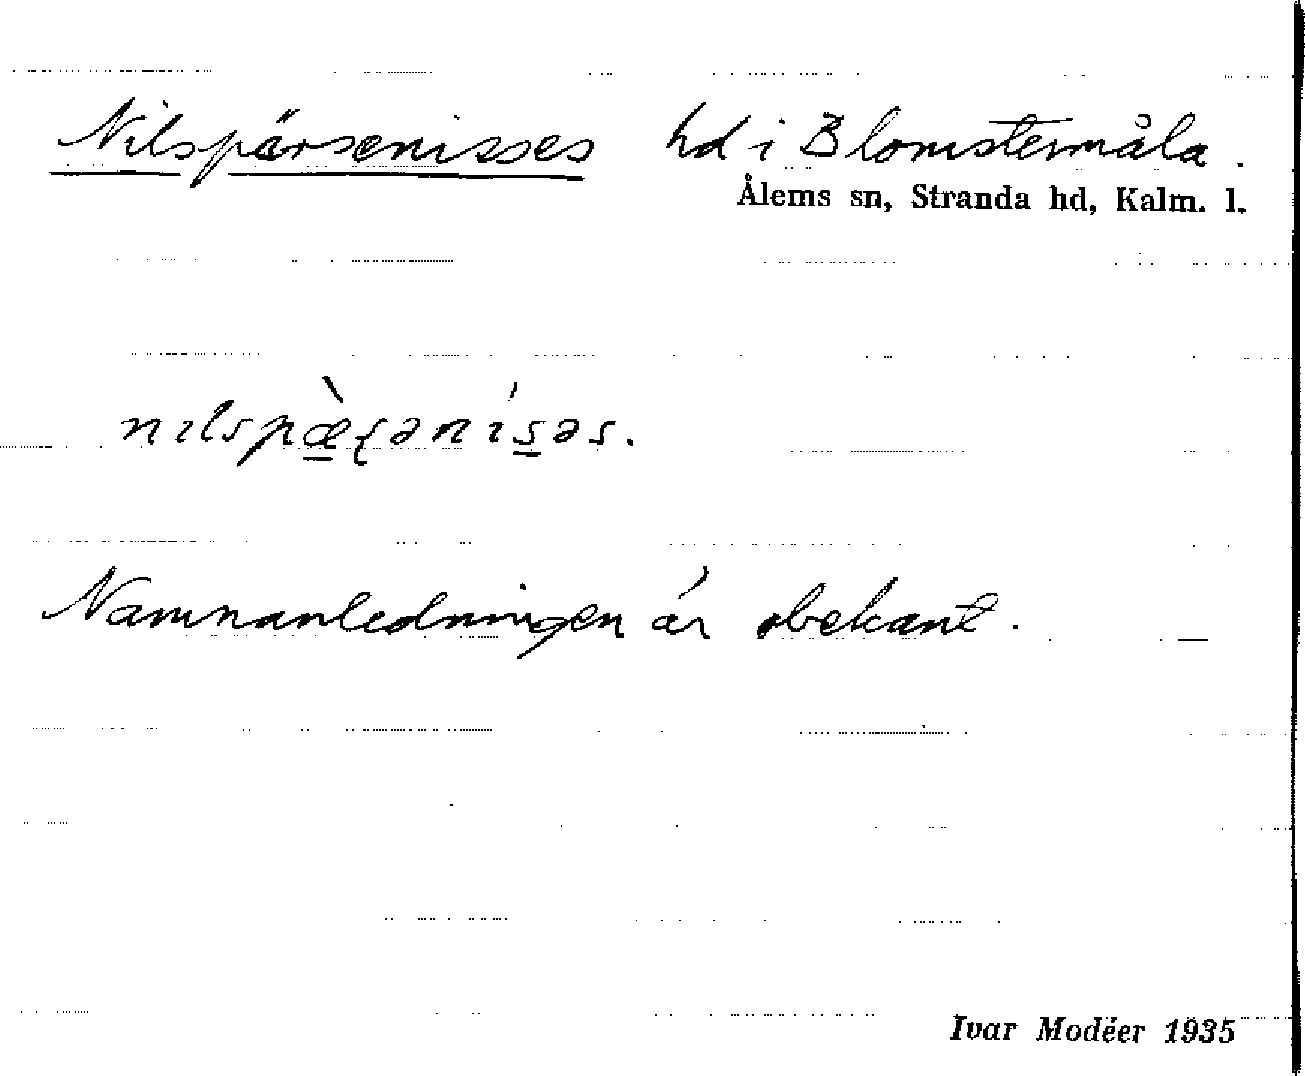 Nilspärsenisses hd i Blomstermåla.
Ålems sn, Stranda hd, Kalm. l.
nılspæ̀ʂənís̲əs.
Namnanledningen är obekant.
Ivar Modéer 1935